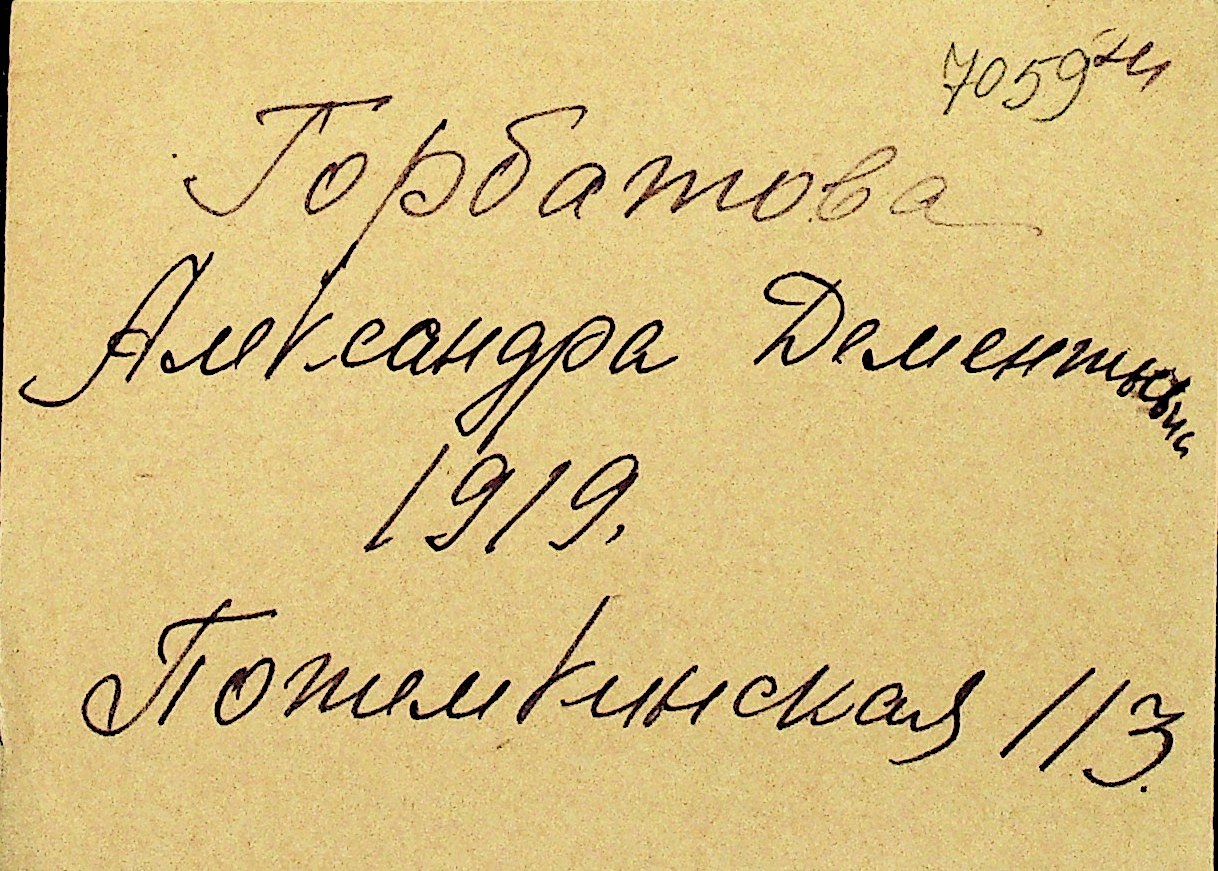 7059
Горбатова
Александра Дементьевна
1919.
Потемкинская 113.